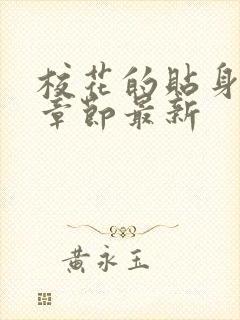 校花的貼身
章節最新
黃永玉